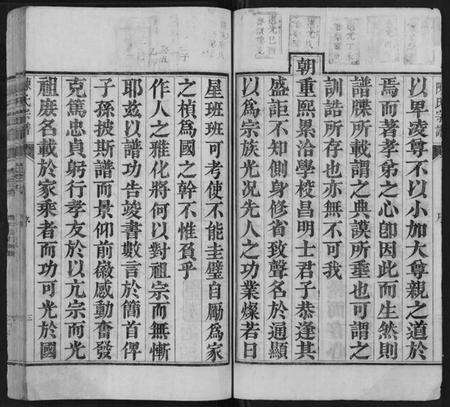 以卑凌尊不以小加大尊親之道於
焉而著孝弟之心卽因此而生然則
譜牒所載謂之典謨所垂也可謂之
訓誥所存也亦無不可我
朝重熙累洽學校昌明士君子恭逢其
盛詎不知側身修省致聲名於通顯
以爲宗族光况先人之功業燦若日
星班班可考使不能圭璧自勵爲家
之楨爲國之幹不慚負乎
作人之雅化將何以對祖宗而無慚
耶茲以譜功告竣書數言於簡首俾
子孫披斯譜而景仰前徽感動奮發
克篤忠貞躬行孝友於以亢宗而光
祖廢名載於家乘者而功可光於國
陳氏宗譜
序